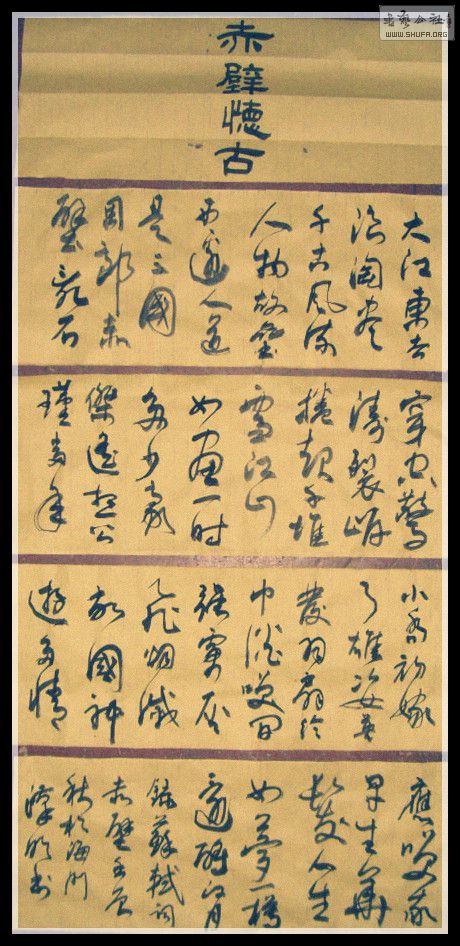 書藝公社
WWW.SHUFA.ORG
赤壁懷古
大江東去
浪淘盡
千古風流
人物故壘
西邊人道
是三國
周郎赤
壁亂石
穿空驚
濤裂岸
捲起千堆
雪江山
如畫一時
多少豪
傑遙想公
瑾當年
小喬初嫁
了雄姿英
發羽扇綸
巾談笑間
強虜灰
飛烟滅
故國神
遊多情
應笑我
早生華
髮人生
如夢一樽
還酹江月
錄蘇軾詞
赤壁
秋於海門
書